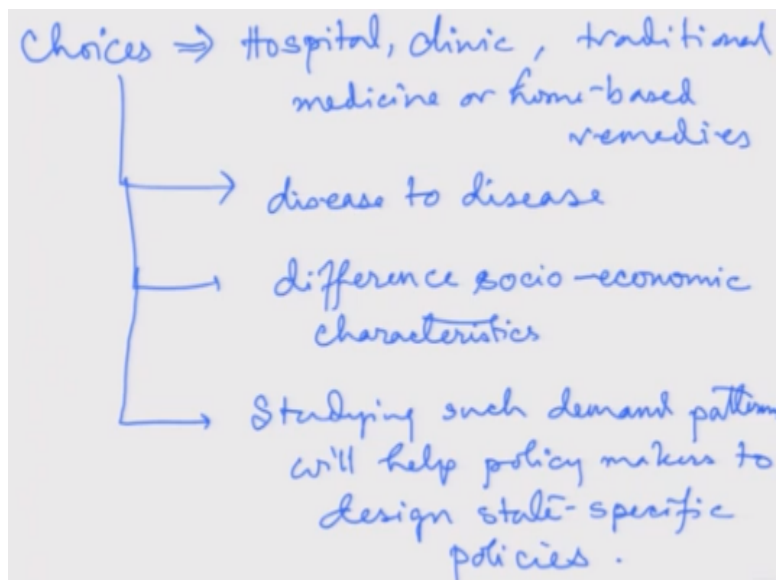 Choices ⇒ Hospital, clinic, traditional
medicine or home-based
remedies
disease to disease
difference socio-economic
characteristics
Studying such demand pattern
will help policy makers to
design state-specific
policies.